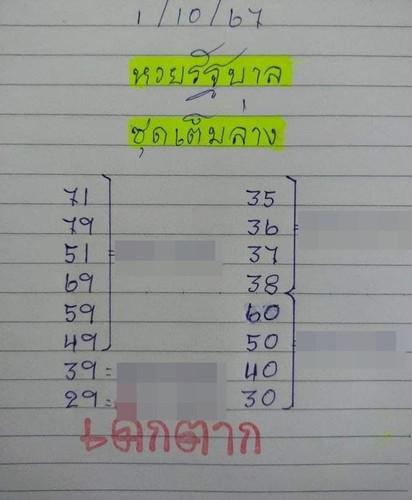 1/10/67
หวยรัฐบาล
ชุดเต็มล่าง
71
79
51 =
69
59
49
39 =
29 =
35
36 =
37
38
60
50 =
40
30
เด็กตาก